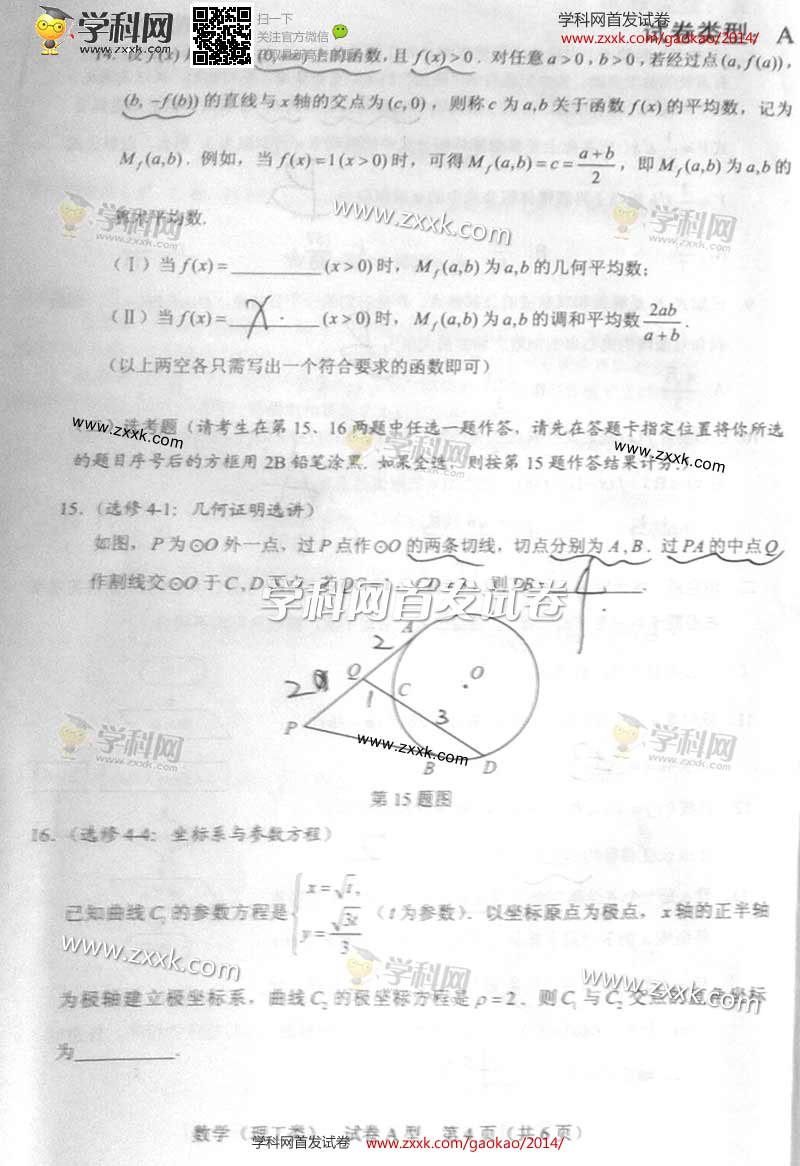 学科网
www.zxxk.com
扫一下
关注官方微信
学科网首发试卷
www.zxxk.com/gaokao/2014/
试卷类型：A
14. 设 f(x) 上的函数，且 f(x)>0．对任意 a>0，b>0，若经过点 (a, f(a))，
(b, -f(b)) 的直线与 x 轴的交点为 (c,0)，则称 c 为 a,b 关于函数 f(x) 的平均数，记为
M_f(a,b)．例如，当 f(x)=1(x>0) 时，可得 M_f(a,b)=c=(a+b)/2，即 M_f(a,b) 为 a,b 的
算术平均数.
学科网
zxxk.com
www.zxxk.com
学科网
zxxk.com
(Ⅰ) 当 f(x)=________ (x>0) 时，M_f(a,b) 为 a,b 的几何平均数；
(Ⅱ) 当 f(x)=___x___ (x>0) 时，M_f(a,b) 为 a,b 的调和平均数 2ab/(a+b).
(以上两空各只需写出一个符合要求的函数即可)
选考题（请考生在第 15、16 两题中任选一题作答，请先在答题卡指定位置将你所选
www.zxxk.com
学科网
www.zxxk.com
的题目序号后的方框用 2B 铅笔涂黑．如果全选，则按第 15 题作答结果计分.）
15.（选修 4-1：几何证明选讲）
如图，P 为⊙O 外一点，过 P 点作⊙O 的两条切线，切点分别为 A,B．过 PA 的中点 Q
作割线交⊙O 于 C,D 则 PB=
学科网首发试卷
A
2
Q
O
2
1
C
3
P
www.zxxk.com
B
D
第 15 题图
学科网
zxxk.com
学科网
zxxk.com
16.（选修 4-4：坐标系与参数方程）
已知曲线 C₁ 的参数方程是 { x=√t, y=√(3t)/3 （t 为参数）．以坐标原点为极点，x 轴的正半轴
www.zxxk.com
学科网
zxxk.com
www.zxxk.com
为极轴建立极坐标系，曲线 C₂ 的极坐标方程是 ρ=2．则 C₁ 与 C₂ 交点的直角坐标
为________.
数学（理工类） 试卷 A 型 第 4 页（共 6 页）
学科网首发试卷
www.zxxk.com/gaokao/2014/